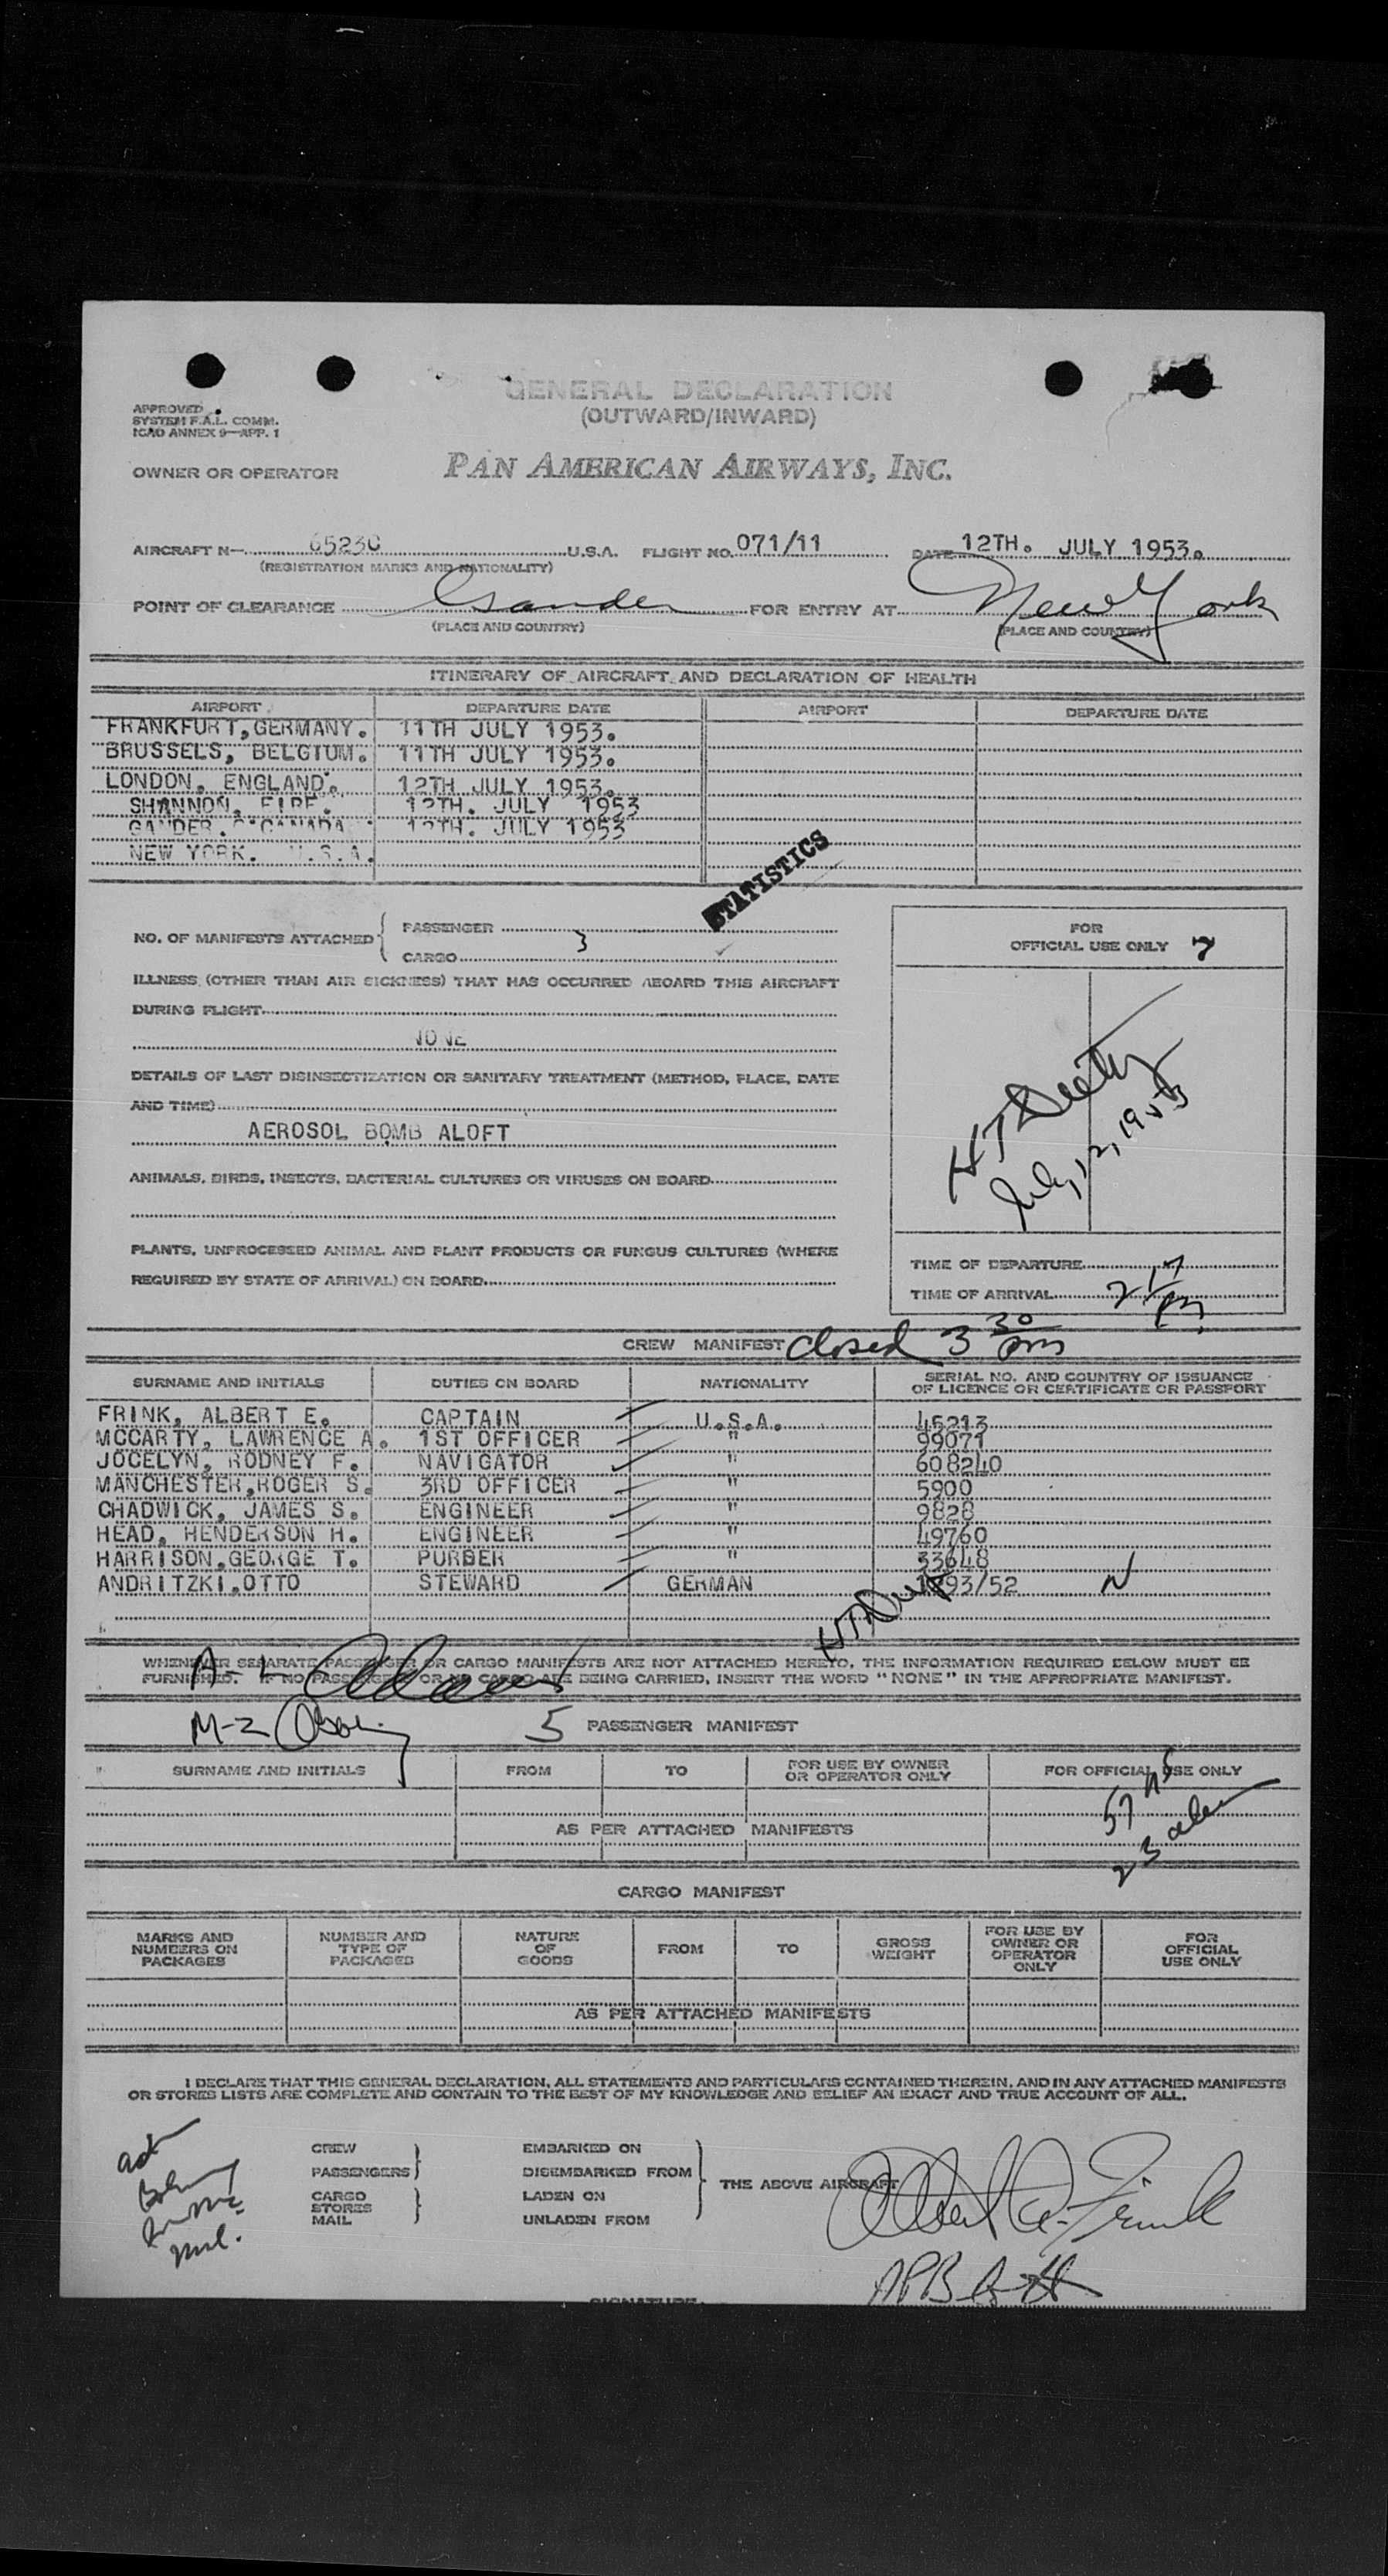 GENERAL DECLARATION
(OUTWARD/INWARD)
APPROVED
SYSTEM F.A.L. COMM.
ICAO ANNEX 9—APP. 1
OWNER OR OPERATOR PAN AMERICAN AIRWAYS, INC.
AIRCRAFT N— U.S.A. FLIGHT NO. 071/11 DATE 12TH. JULY 1953.
(REGISTRATION MARKS AND NATIONALITY)
POINT OF CLEARANCE Gander FOR ENTRY AT New York
(PLACE AND COUNTRY) (PLACE AND COUNTRY)
ITINERARY OF AIRCRAFT AND DECLARATION OF HEALTH
AIRPORT DEPARTURE DATE AIRPORT DEPARTURE DATE
FRANKFURT, GERMANY. 11TH JULY 1953.
BRUSSELS, BELGIUM. 11TH JULY 1953.
LONDON, ENGLAND. 12TH JULY 1953.
SHANNON, EIRE. 12TH. JULY 1953
GANDER. CANADA 12TH. JULY 1953
NEW YORK. U.S.A.
STATISTICS
NO. OF MANIFESTS ATTACHED { PASSENGER 3
CARGO
FOR
OFFICIAL USE ONLY 7
ILLNESS (OTHER THAN AIR SICKNESS) THAT HAS OCCURRED ABOARD THIS AIRCRAFT
DURING FLIGHT
NONE
DETAILS OF LAST DISINSECTIZATION OR SANITARY TREATMENT (METHOD, PLACE, DATE
AND TIME)
AEROSOL BOMB ALOFT
July 12, 1953
ANIMALS, BIRDS, INSECTS, BACTERIAL CULTURES OR VIRUSES ON BOARD
PLANTS, UNPROCESSED ANIMAL AND PLANT PRODUCTS OR FUNGUS CULTURES (WHERE
REQUIRED BY STATE OF ARRIVAL) ON BOARD
TIME OF DEPARTURE
TIME OF ARRIVAL 2 17 PM
CREW MANIFEST closed 3 30 pm
SURNAME AND INITIALS DUTIES ON BOARD NATIONALITY SERIAL NO. AND COUNTRY OF ISSUANCE
OF LICENCE OR CERTIFICATE OR PASSPORT
FRINK, ALBERT E. CAPTAIN U.S.A. 45213
MCCARTY, LAWRENCE A. 1ST OFFICER " 99071
JOCELYN, RODNEY F. NAVIGATOR " 608240
MANCHESTER, ROGER S. 3RD OFFICER " 5900
CHADWICK, JAMES S. ENGINEER " 9828
HEAD, HENDERSON H. ENGINEER " 49760
HARRISON, GEORGE T. PURSER " 33648
ANDRITZKI, OTTO STEWARD GERMAN 93/52 N
WHENEVER SEPARATE PASSENGER OR CARGO MANIFESTS ARE NOT ATTACHED HERETO, THE INFORMATION REQUIRED BELOW MUST BE
FURNISHED. IF NO PASSENGER OR NO CARGO ARE BEING CARRIED, INSERT THE WORD "NONE" IN THE APPROPRIATE MANIFEST.
A-L Adams
M-Z
5 PASSENGER MANIFEST
SURNAME AND INITIALS FROM TO FOR USE BY OWNER
OR OPERATOR ONLY FOR OFFICIAL USE ONLY
57 US
23 alien
AS PER ATTACHED MANIFESTS
CARGO MANIFEST
MARKS AND
NUMBERS ON
PACKAGES NUMBER AND
TYPE OF
PACKAGES NATURE
OF
GOODS FROM TO GROSS
WEIGHT FOR USE BY
OWNER OR
OPERATOR
ONLY FOR
OFFICIAL
USE ONLY
AS PER ATTACHED MANIFESTS
I DECLARE THAT THIS GENERAL DECLARATION, ALL STATEMENTS AND PARTICULARS CONTAINED THEREIN, AND IN ANY ATTACHED MANIFESTS
OR STORES LISTS ARE COMPLETE AND CONTAIN TO THE BEST OF MY KNOWLEDGE AND BELIEF AN EXACT AND TRUE ACCOUNT OF ALL.
CREW EMBARKED ON
PASSENGERS DISEMBARKED FROM THE ABOVE AIRCRAFT
CARGO LADEN ON
STORES
MAIL UNLADEN FROM
SIGNATURE